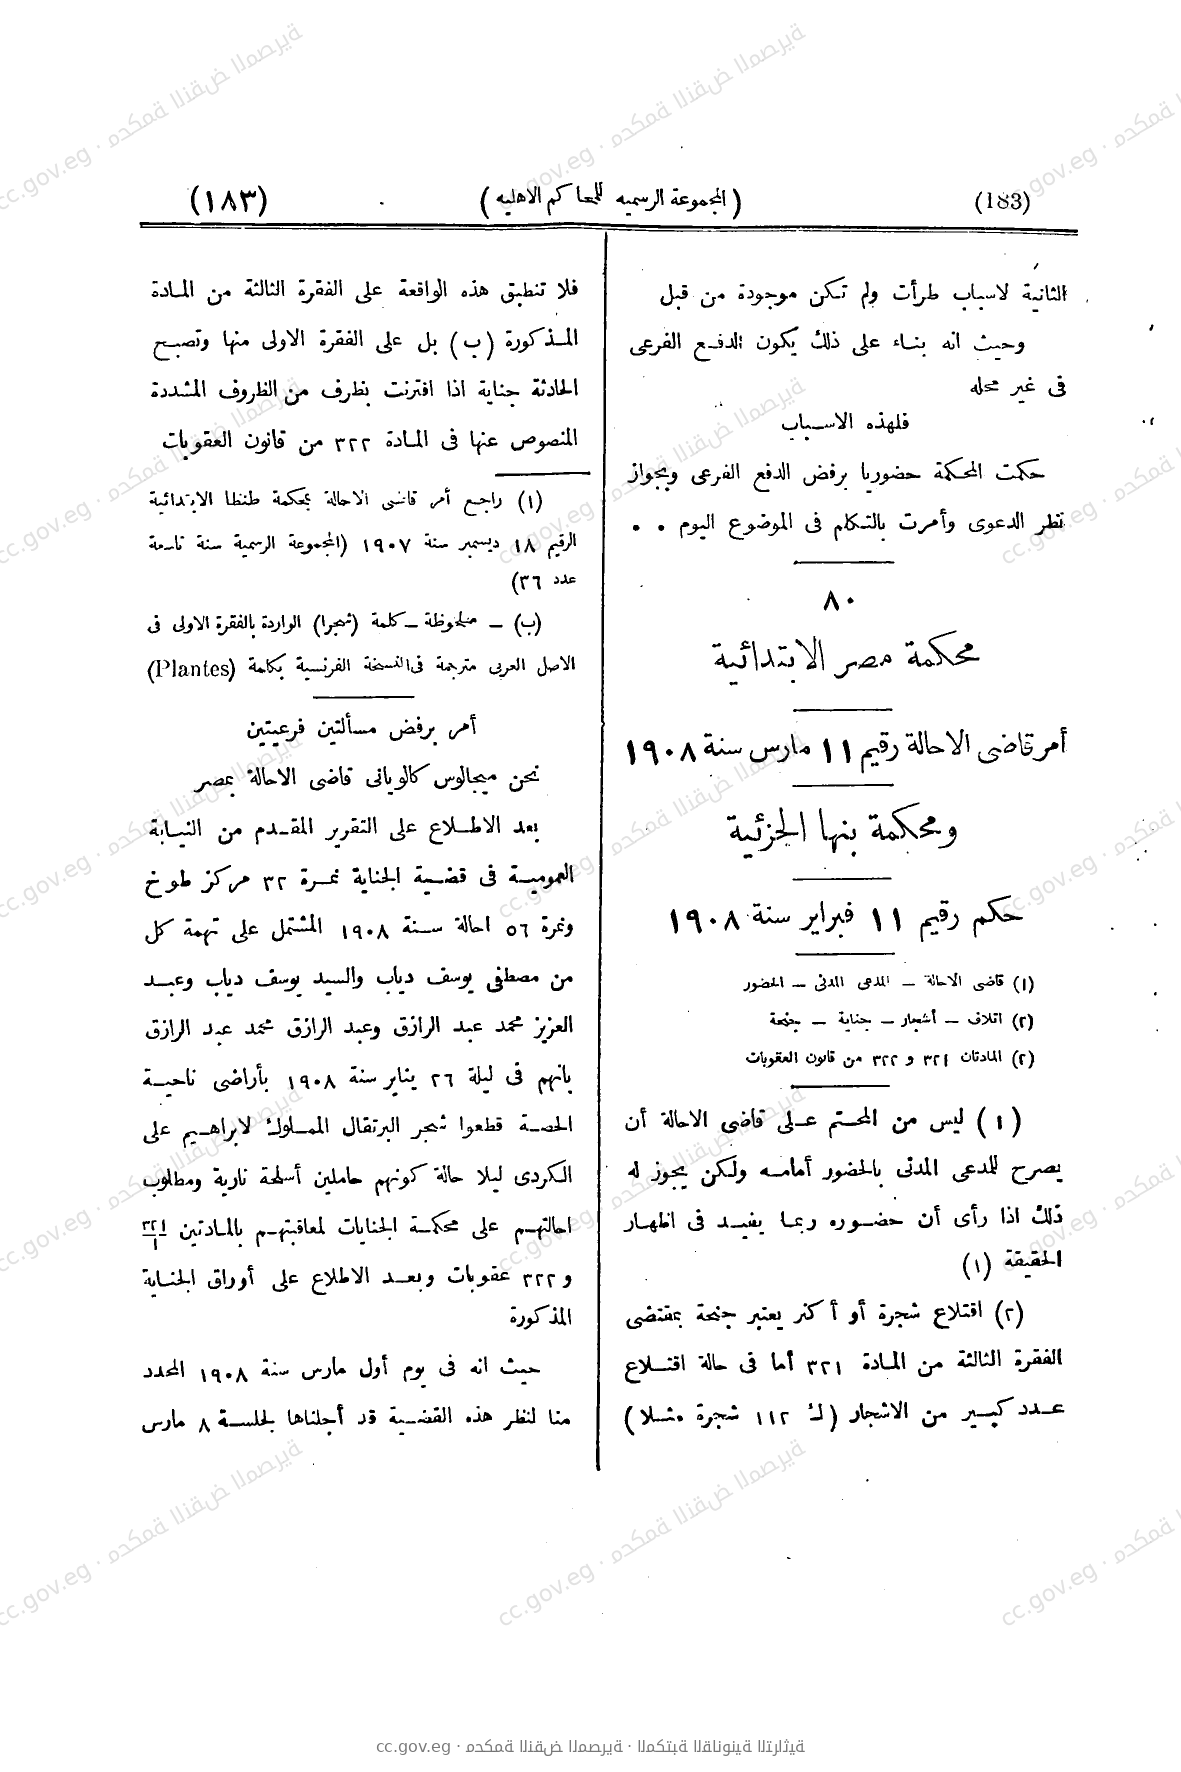 (183)
( المجموعة الرسميه للمحاكم الاهليه )
(١٨٣)
الثانية لاسباب طرأت ولم تكن موجودة من قبل
وحيث انه بناء على ذلك يكون الدفع الفرعى
فى غير محله
فلهذه الاسباب
حكمت المحكمة حضوريا برفض الدفع الفرعى وبجواز
نظر الدعوى وأمرت بالتكلم فى الموضوع اليوم . .
٨٠
محكمة مصر الابتدائية
أمر قاضى الاحالة رقيم ١١ مارس سنة ١٩٠٨
ومحكمة بنها الجزئية
حكم رقيم ١١ فبراير سنة ١٩٠٨
(١) قاضى الاحالة – المدعى المدنى – الحضور
(٢) اتلاف – أشجار – جناية – جنحة
(٢) المادتان ٣٢١ و ٣٢٢ من قانون العقوبات
( ١ ) ليس من المحتم على قاضى الاحالة أن
يصرح للمدعى المدنى بالحضور أمامه ولكن يجوز له
ذلك اذا رأى أن حضوره ربما يفيد فى اظهار
الحقيقة (١)
(٢) اقتلاع شجرة أو أكثر يعتبر جنحة بمقتضى
الفقرة الثالثة من المادة ٣٢١ أما فى حالة اقتلاع
عدد كبير من الاشجار (ك ١١٢ شجرة مثلا )
فلا تنطبق هذه الواقعة على الفقرة الثالثة من المادة
المذكورة (ب) بل على الفقرة الاولى منها وتصبح
الحادثة جناية اذا اقترنت بظرف من الظروف المشددة
المنصوص عنها فى المادة ٣٢٢ من قانون العقوبات
(١) راجع أمر قاضى الاحالة بمحكمة طنطا الابتدائية
الرقيم ١٨ ديسمبر سنة ١٩٠٧ (المجموعة الرسمية سنة تاسعة
عدد ٣٦)
(ب) – ملحوظة – كلمة (شجرا) الواردة بالفقرة الاولى فى
الاصل العربى مترجمة فى النسخة الفرنسية بكلمة (Plantes)
أمر برفض مسألتين فرعيتين
نحن ميجالوس كالويانى قاضى الاحالة بمصر
بعد الاطلاع على التقرير المقدم من النيابة
العمومية فى قضية الجناية نمرة ٣٢ مركز طوخ
ونمرة ٥٦ احالة سنة ١٩٠٨ المشتمل على تهمة كل
من مصطفى يوسف دياب والسيد يوسف دياب وعبد
العزيز محمد عبد الرازق وعبد الرازق محمد عبد الرازق
بانهم فى ليلة ٢٦ يناير سنة ١٩٠٨ بأراضى ناحية
الحصة قطعوا شجر البرتقال المملوك لابراهيم على
الكردى ليلا حالة كونهم حاملين أسلحة نارية ومطلوب
احالتهم على محكمة الجنايات لمعاقبتهم بالمادتين ٣٢١/١
و ٣٢٢ عقوبات وبعد الاطلاع على أوراق الجناية
المذكورة
حيث انه فى يوم أول مارس سنة ١٩٠٨ المحدد
منا لنظر هذه القضية قد أجلناها لجلسة ٨ مارس
cc.gov.eg · محكمة النقض المصرية · المكتبة القانونية التراثية